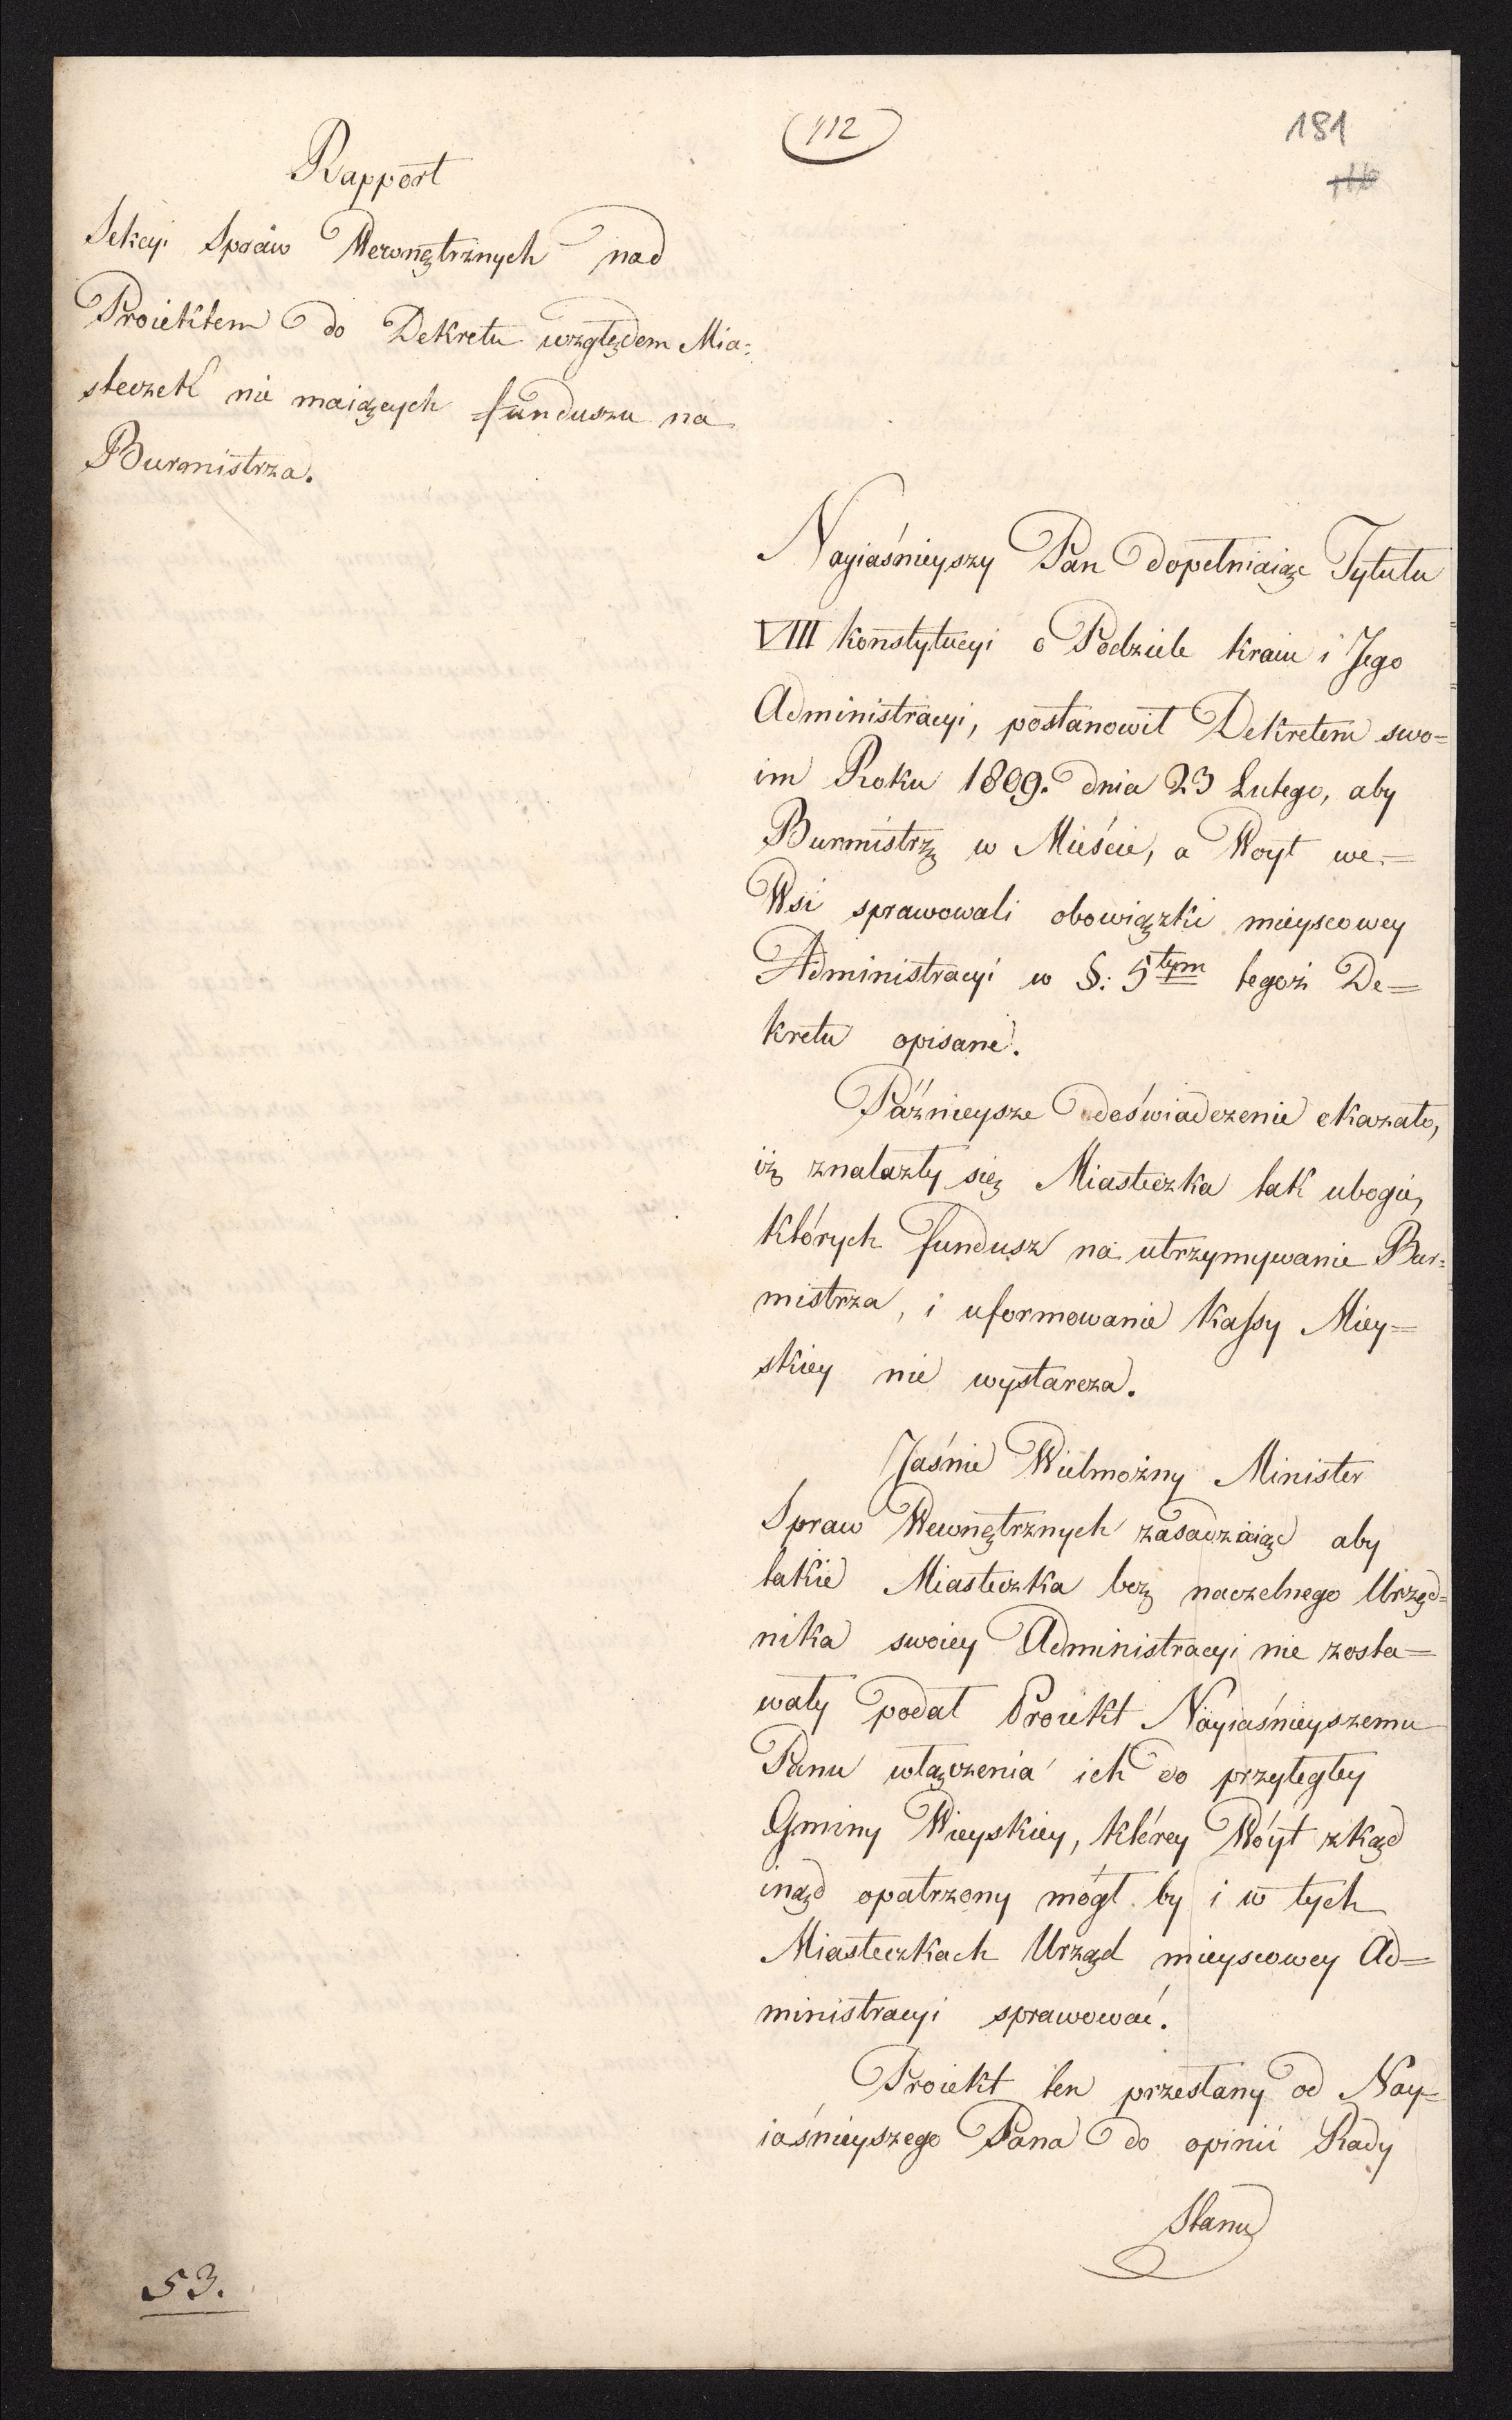 112
181
Rapport
Sekcyi Spraw Wewnętrznych nad
Proiektem do Dekretu względem Mia=
steczek nie maiących funduszu na
Burmistrza.
Nayiaśnieyszy Pan dopełniaiąc Tytułu
VIII konstytucyi o Podziele kraiu i Jego
Administracyi, postanowił Dekretem swo=
im Roku 1809. dnia 23 Lutego, aby
Burmistrz w Mieście, a Woyt we=
Wsi sprawowali obowiązki mieyscowey
Administracyi w §: 5tym tegoż De=
kretu opisane.
Późnieysze doświadczenie okazało,
iż znalazły się Miasteczka tak ubogie,
których fundusz na utrzymywanie Bur=
mistrza, i uformowanie Kassy Miey=
skiey nie wystarcza.
Jaśnie Wielmożny Minister
Spraw Wewnętrznych zasadzaiąc aby
takie Miasteczka bez naczelnego Urzęd=
nika swoiey Administracyi nie zosta=
wały podał Proiekt Nayiaśnieyszemu
Panu włączenia ich do przyległey
Gminy Wieyskiey, którey Wóyt zkąd
inąd opatrzony mógł by i w tych
Miasteczkach Urząd mieyscowey Ad=
ministracyi sprawować.
Proiekt ten przesłany od Nay=
iaśnieyszego Pana do opinii Rady
Stanu
53.